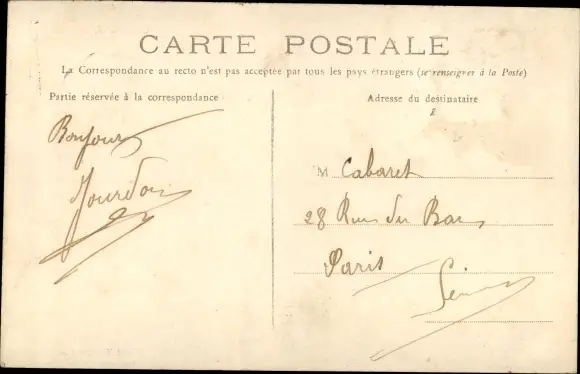 CARTE POSTALE
La Correspondance au recto n'est pas acceptée par tous les pays étrangers (se renseigner à la Poste)
Partie réservée à la correspondance
Adresse du destinataire
Bonjour
Jourdon
M Cabaret
28 Rue du Bac
Paris
Seine